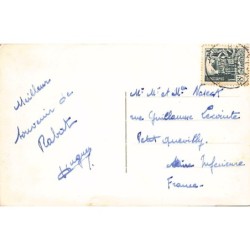 Meilleur
souvenir de
Rabat
Mr et Mme
rue Guillaume Lecointe
Petit Quevilly
Seine Inférieure
France